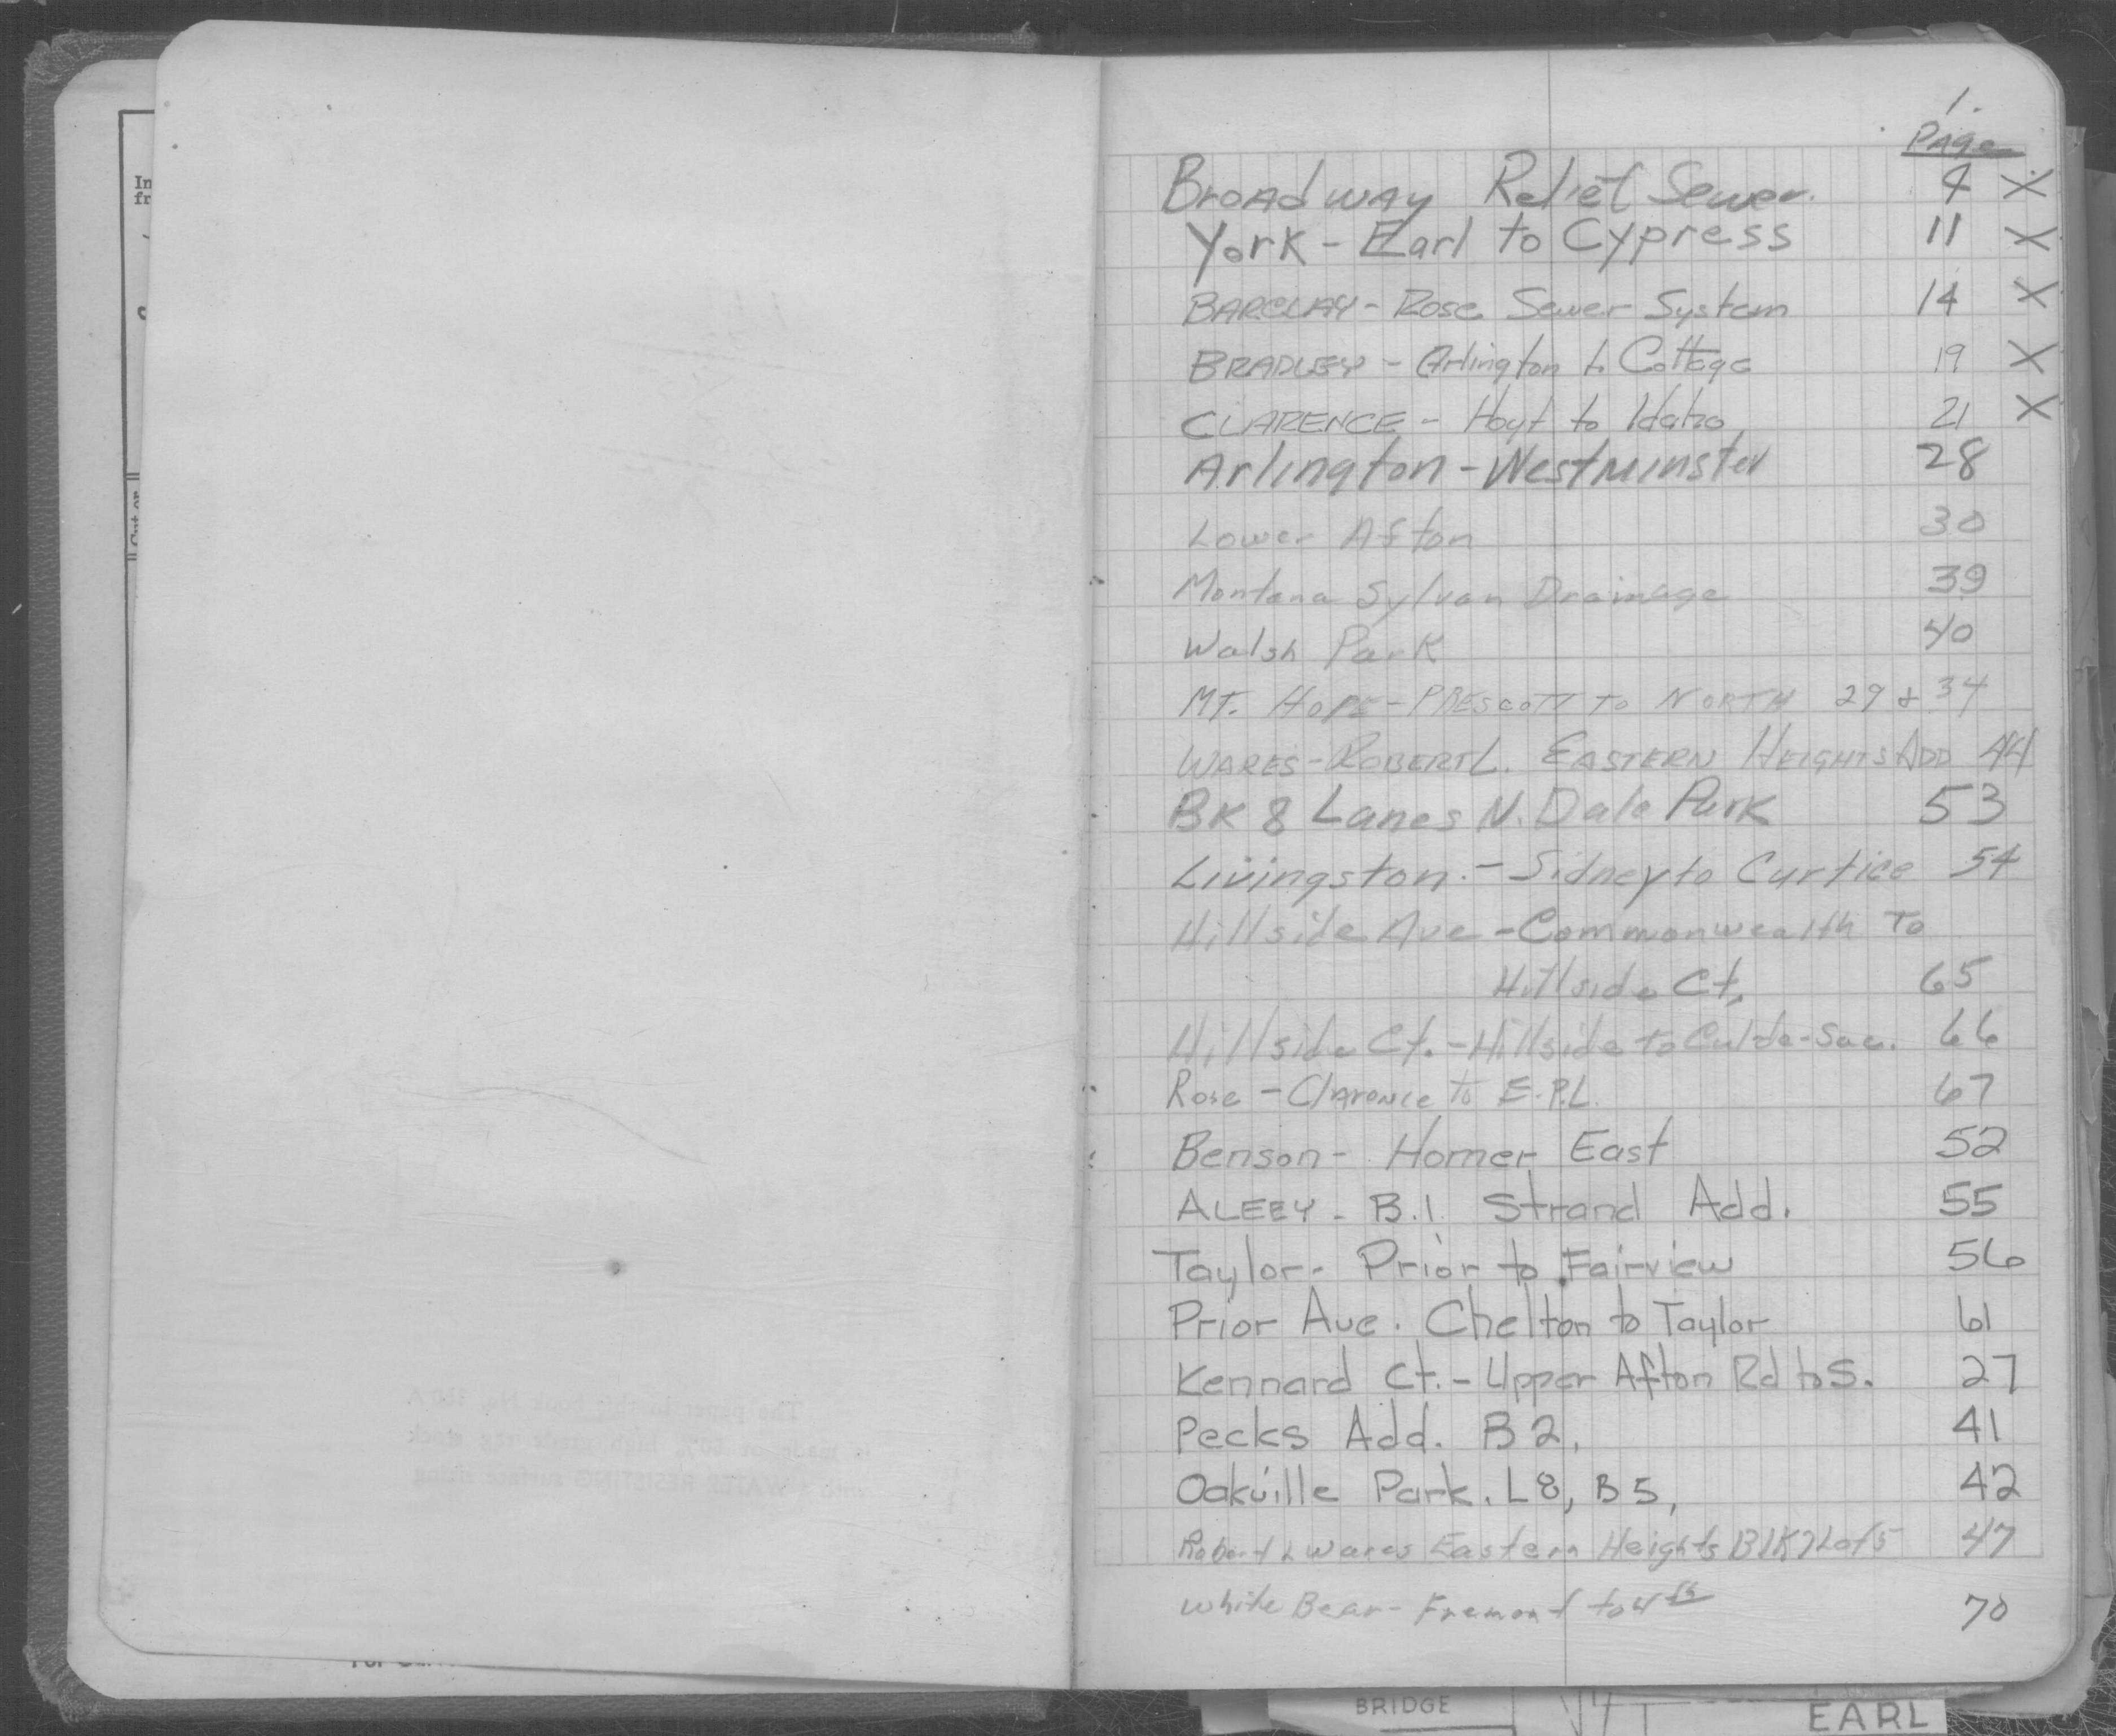 In
fr
1.
Page
Broadway Relief Sewer. 4 X
York - Earl to Cypress 11 X
BARCLAY - Rose Sewer System 14 X
BRADLEY - Arlington to Cottage 19 X
CLARENCE - Hoyt to Idaho 21 X
Arlington - Westminster 28
Lower Afton 30
Montana Sylvan Drainage 39
Walsh Park 40
MT. HOPE - PRESCOTT TO NORTH 29 & 34
WARES - ROBERT L. EASTERN HEIGHTS ADD 44
BK 8 Lanes N. Dale Park 53
Livingston. - Sidney to Curtice 54
Hillside Ave - Commonwealth To
Hillside Ct. 65
Hillside Ct. - Hillside to Culde-Sac. 66
Rose - Clarence To E.P.L. 67
Benson - Homer East 52
ALEEY - B.1. Strand Add. 55
Taylor - Prior to Fairview 56
Prior Ave. Chelton to Taylor 61
Kennard Ct. - Upper Afton Rd to S. 27
Pecks Add. B 2, 41
Oakville Park. L 8, B 5, 42
Robert L Wares Eastern Heights Blk 7 Lot 5 47
White Bear - Fremont to 4th 70
The paper in this book No. A
is made of 50% high grade rag stock
with a WATER RESISTING surface sizing
BRIDGE
EARL